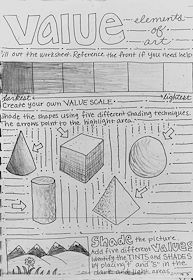 value elements
of
art
Fill out the worksheet. Reference the front if you need help!
darkest lightest
Create your own VALUE SCALE.
Shade the shapes using five different shading techniques.
The arrows point to the highlight area.
Shade the picture.
Add five different values.
Identify the TINTS and SHADES
by placing T and "S" in the
dark and light areas.